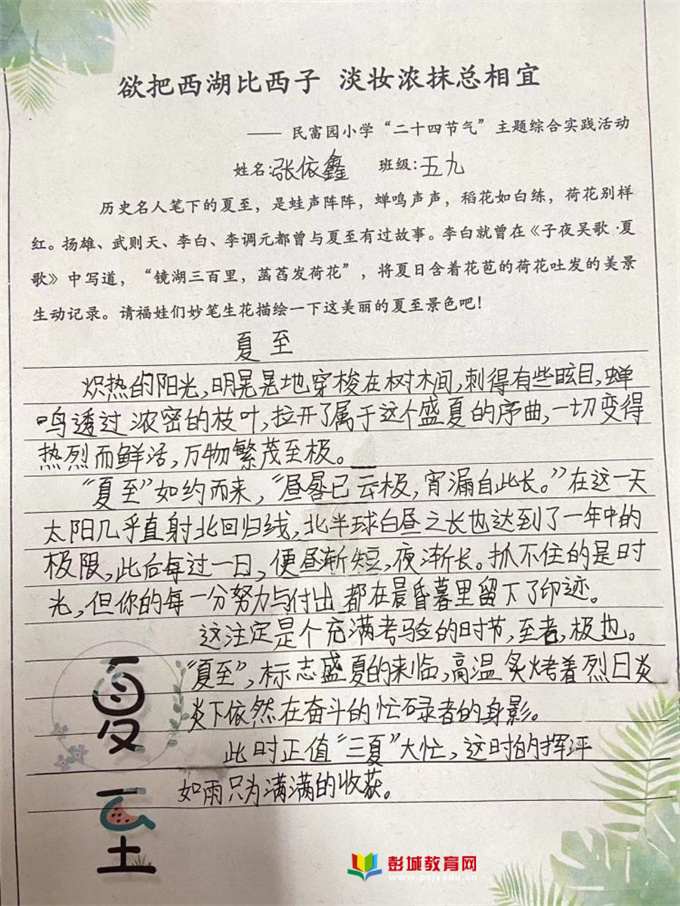 欲把西湖比西子 淡妆浓抹总相宜
—— 民富园小学“二十四节气”主题综合实践活动
姓名:张依鑫 班级:五九
历史名人笔下的夏至，是蛙声阵阵，蝉鸣声声，稻花如白练，荷花别样
红。扬雄、武则天、李白、李调元都曾与夏至有过故事。李白就曾在《子夜吴歌·夏
歌》中写道，“镜湖三百里，菡萏发荷花”，将夏日含着花苞的荷花吐发的美景
生动记录。请福娃们妙笔生花描绘一下这美丽的夏至景色吧！
夏至
炽热的阳光，明晃晃地穿梭在树木间，刺得有些眩目，蝉
鸣透过浓密的枝叶，拉开了属于这个盛夏的序曲，一切变得
热烈而鲜活，万物繁茂至极。
“夏至”如约而来，“昼晷已云极，宵漏自此长。”在这一天
太阳几乎直射北回归线，北半球白昼之长也达到了一年中的
极限，此后每过一日，便昼渐短，夜渐长。抓不住的是时
光，但你的每一分努力与付出都在晨昏暮里留下了印迹。
这注定是个充满考验的时节，至者，极也。
“夏至”，标志盛夏的来临，高温炙烤着烈日炎
炎下依然在奋斗的忙碌者的身影。
此时正值“三夏”大忙，这时的挥汗
如雨只为满满的收获。
夏
至
彭城教育网
www.pcjyedu.cn